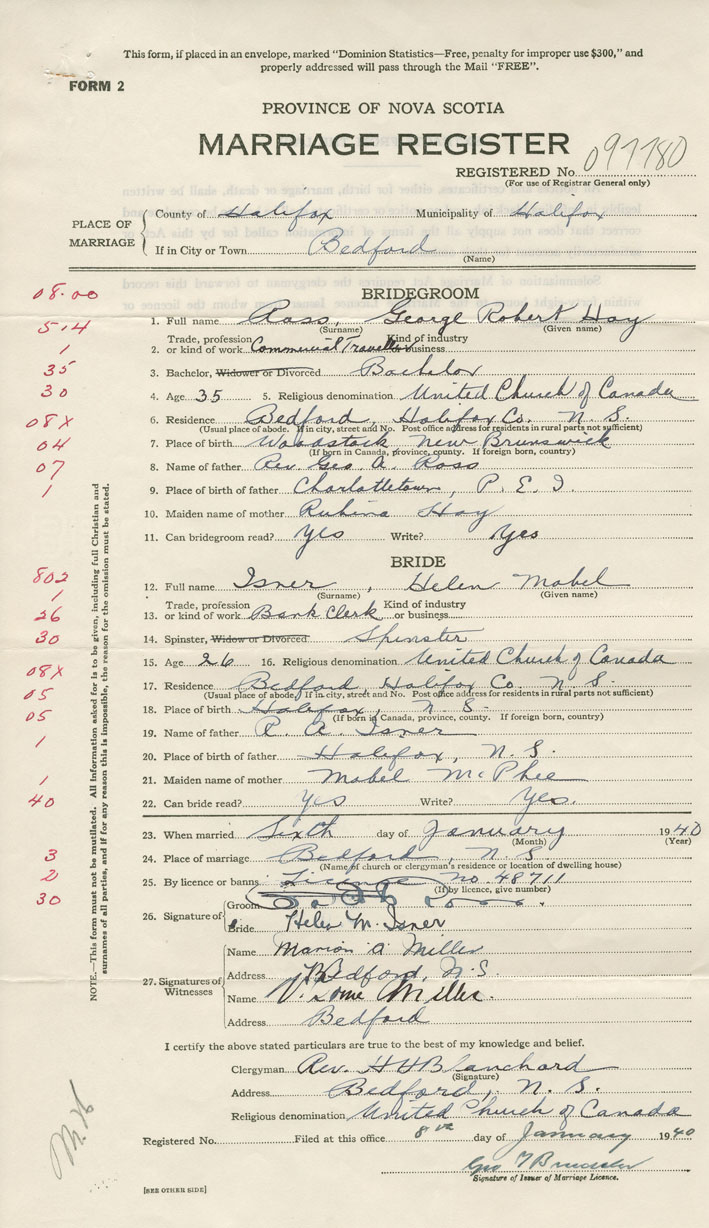 This form, if placed in an envelope, marked "Dominion Statistics—Free, penalty for improper use $300," and
properly addressed will pass through the Mail "FREE".
FORM 2
PROVINCE OF NOVA SCOTIA
MARRIAGE REGISTER
REGISTERED No. 097780
(For use of Registrar General only)
PLACE OF MARRIAGE
County of Halifax Municipality of Halifax
If in City or Town Bedford
(Name)
08.00
BRIDEGROOM
514
1. Full name Ross, George Robert Hay
(Surname) (Given name)
1
2. Trade, profession or kind of work Commercial Traveller Kind of industry or business
35
3. Bachelor, Widower or Divorced Bachelor
30
4. Age 35 5. Religious denomination United Church of Canada
08X
6. Residence Bedford, Halifax Co. N. S.
(Usual place of abode. If in city, street and No. Post office address for residents in rural parts not sufficient)
04
7. Place of birth Woodstock New Brunswick
(If born in Canada, province, county. If foreign born, country)
07
8. Name of father Rev. Geo. A. Ross
1
9. Place of birth of father Charlottetown, P. E. I.
10. Maiden name of mother Ruhina Hay
11. Can bridegroom read? Yes Write? Yes
BRIDE
802
12. Full name Isner, Helen Mabel
(Surname) (Given name)
1
26
13. Trade, profession or kind of work Bank Clerk Kind of industry or business
30
14. Spinster, Widow or Divorced Spinster
15. Age 26 16. Religious denomination United Church of Canada
08X
17. Residence Bedford, Halifax Co. N. S.
(Usual place of abode. If in city, street and No. Post office address for residents in rural parts not sufficient)
05
18. Place of birth Halifax, N. S.
(If born in Canada, province, county. If foreign born, country)
05
19. Name of father R. A. Isner
1
20. Place of birth of father Halifax, N. S.
1
21. Maiden name of mother Mabel McPhee
40
22. Can bride read? Yes Write? Yes.
23. When married Sixth day of January 1940
(Month) (Year)
3
24. Place of marriage Bedford, N. S.
(Name of church or clergyman's residence or location of dwelling house)
2
25. By licence or banns License No. 48711
(If by licence, give number)
30
26. Signature of Groom
Bride Helen M. Isner
27. Signatures of Witnesses
Name Marion A Miller
Address Bedford, N. S.
Name Miller.
Address Bedford
I certify the above stated particulars are true to the best of my knowledge and belief.
Clergyman Rev. H H Blanchard
(Signature)
Address Bedford, N. S.
Religious denomination United Church of Canada
Registered No. Filed at this office 8 day of January 1940
Geo
Signature of Issuer of Marriage Licence.
[SEE OTHER SIDE]
NOTE.—This form must not be mutilated. All information asked for is to be given, including full Christian and
surnames of all parties, and if for any reason this is impossible, the reason for the omission must be stated.